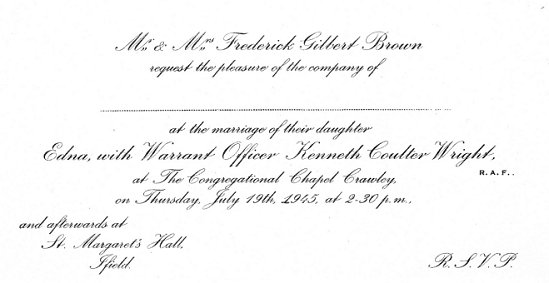 Mr & Mrs Frederick Gilbert Brown
request the pleasure of the company of
at the marriage of their daughter
Edna, with Warrant Officer Kenneth Coulter Wright,
R.A.F..
at The Congregational Chapel Crawley,
on Thursday, July 19th, 1945, at 2-30 p.m.,
and afterwards at
St. Margaret's Hall,
Ifield.
R.S.V.P.